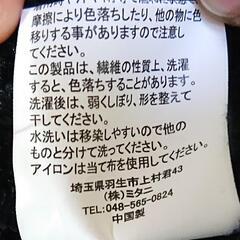 摩擦により色落ちしたり、他の物に色
移りする事がありますので注意し
てください。
この製品は、繊維の性質上、洗濯
すると、色落ちすることがあります。
洗濯後は、弱くしぼり、形を整えて
干してください。
水洗いは移染しやすいので他の
ものと分けて洗ってください。
アイロンは当て布を使用してください。
埼玉県羽生市上村君43
(株)ミタニ
TEL:048-565-0824
中国製